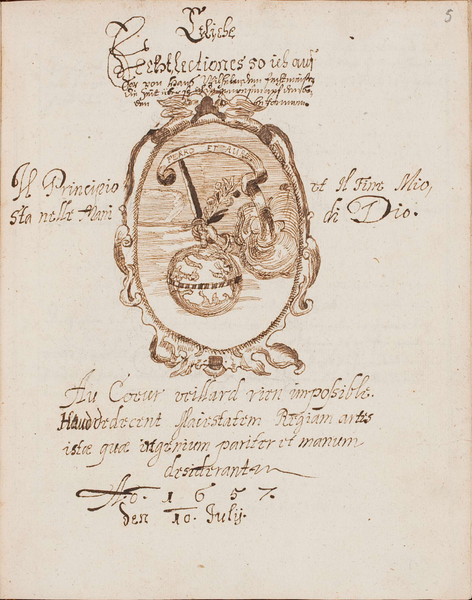 5
Etliche
Fechtlectiones so ich auß
der von Hans
die Zeit
von
FERRO ET AURO
Il Principio et Il Fine Mio,
sta nelle Mani di Dio.
Au Coeur veillard rien imposible.
Haud dedecent Maiestatem Regiam artes
istæ quæ ingenium pariter et manum
desiderant
Aō. 1657.
den 10. Julij.